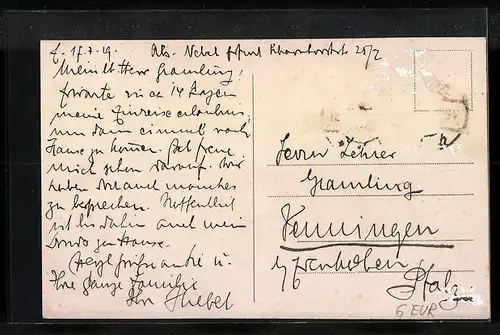 E. 17.7.19. Abs. Nebel Erfurt Scharnhorststr. 25/2
Mein lb. Herr Gramling!
Erwarte in ca 14 Tagen
meine Einreiseerlaubnis,
um dann einmal nach
Hause zu können. Bei freue
mich schon darauf. Wir
haben dort auch manches
zu besprechen. Hoffentlich
ist bis dahin auch mein
zu Hause.
Herzl. Grüße an Sie u.
Ihre ganze Familie
Ihr Nebel
Herrn Lehrer
Gramling
Venningen
b/ Edenkoben
Pfalz
6 EUR